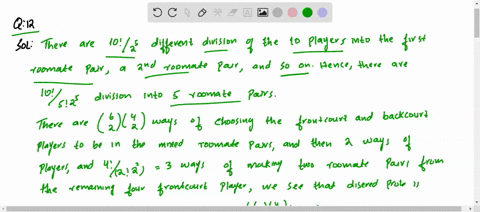 Q:12
Sol: There are 10!/2⁵ different division of the 10 players into the first
roomate pair, a 2nd roomate pair, and so on. Hence, there are
10!/5!2⁵ division into 5 roomate pairs.
There are (6 2)(4 2) ways of choosing the frontcourt and backcourt
players to be in the mixed roomate pairs, and then 2 ways of
players, and 4!/(2!2²) = 3 ways of making two roomate pairs from
the remaining four frontcourt player, we see that disered prob is